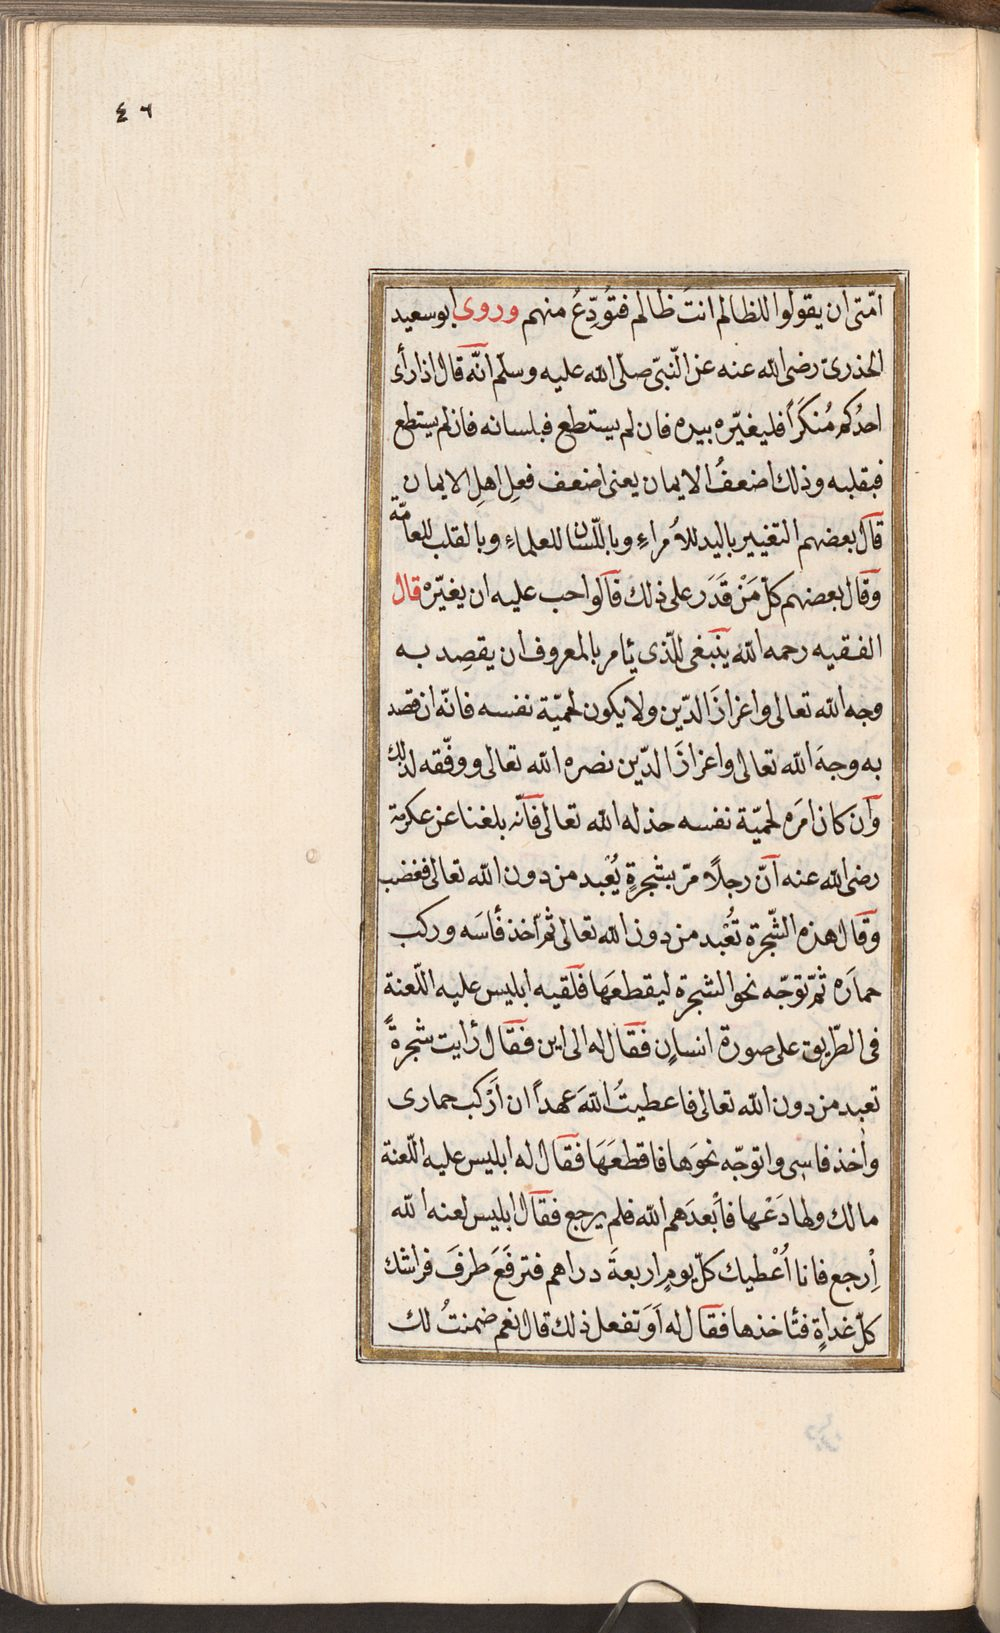 ٤٦
امّتى ان يقولوا للظالم انتَ ظالم فتُودِّعُ منهم وروى ابو سعيد
الخذرىّ رضى الله عنه عن النّبىّ صلّى الله عليه وسلّم انّه قال اذا رأى
احدُكم مُنكَرًا فليغيّره بيده فان لم يستطع فبلسانه فان لم يستطع
فبقلبه وذلك اضعفُ الايمان يعنى اضعف فعلِ اهلِ الايمان
قال بعضهم التغيير باليد للاُمراءِ وباللّسان للعلماءِ وبالقلب للعامّة
وقال بعضهم كلّ مَنْ قَدَر على ذلك فالواحب عليه ان يغيّره قال
الفقيه رحمه الله ينبغى للّذى ئامر بالمعروف ان يقصِد به
وجه الله تعالى واعزازَ الدّين ولا يكون لحميّة نفسه فانّه ان قصد
به وجهَ الله تعالى واعزازَ الدّين نصره الله تعالى ووفّقه لذلك
وان كان امَره لحميّة نفسه حذله الله تعالى فانّه بلغنا عن عكرمة
رضى الله عنه انّ رجلًا مرّ بشجرةٍ يُعْبد من دون الله تعالى فغضب
وقال هذه الشّجرة تُعْبد من دون الله تعالى ثمّ أخذ فأسَه وركب
حمارَه ثمّ توجّه نحو الشجرة ليقطعَها فلقيه ابليس عليه اللّعنة
فى الطّريق على صورة انسانٍ فقال له الى اين فقال رٔايت شجرةً
تعبد من دون الله تعالى فاعطيتُ اللهَ عهدًا ان اَرْكب حمارى
واٰخذ فاسِى واتوجّه نحوَها فاقطعَهَا فقال له ابليس عليه اللّعنة
مالك ولها دَعْها فاَبْعدَهم الله فلم يرجع فقال ابليس لعنه الله
اِرجع فانا اُعْطيك كلّ يومٍ اربعةَ دراهم فترفَعَ طرفَ فراشك
كلّ غداةٍ فتٔاخذها فقال له اَوَ تفعل ذلك قال نعم ضمنتُ لك